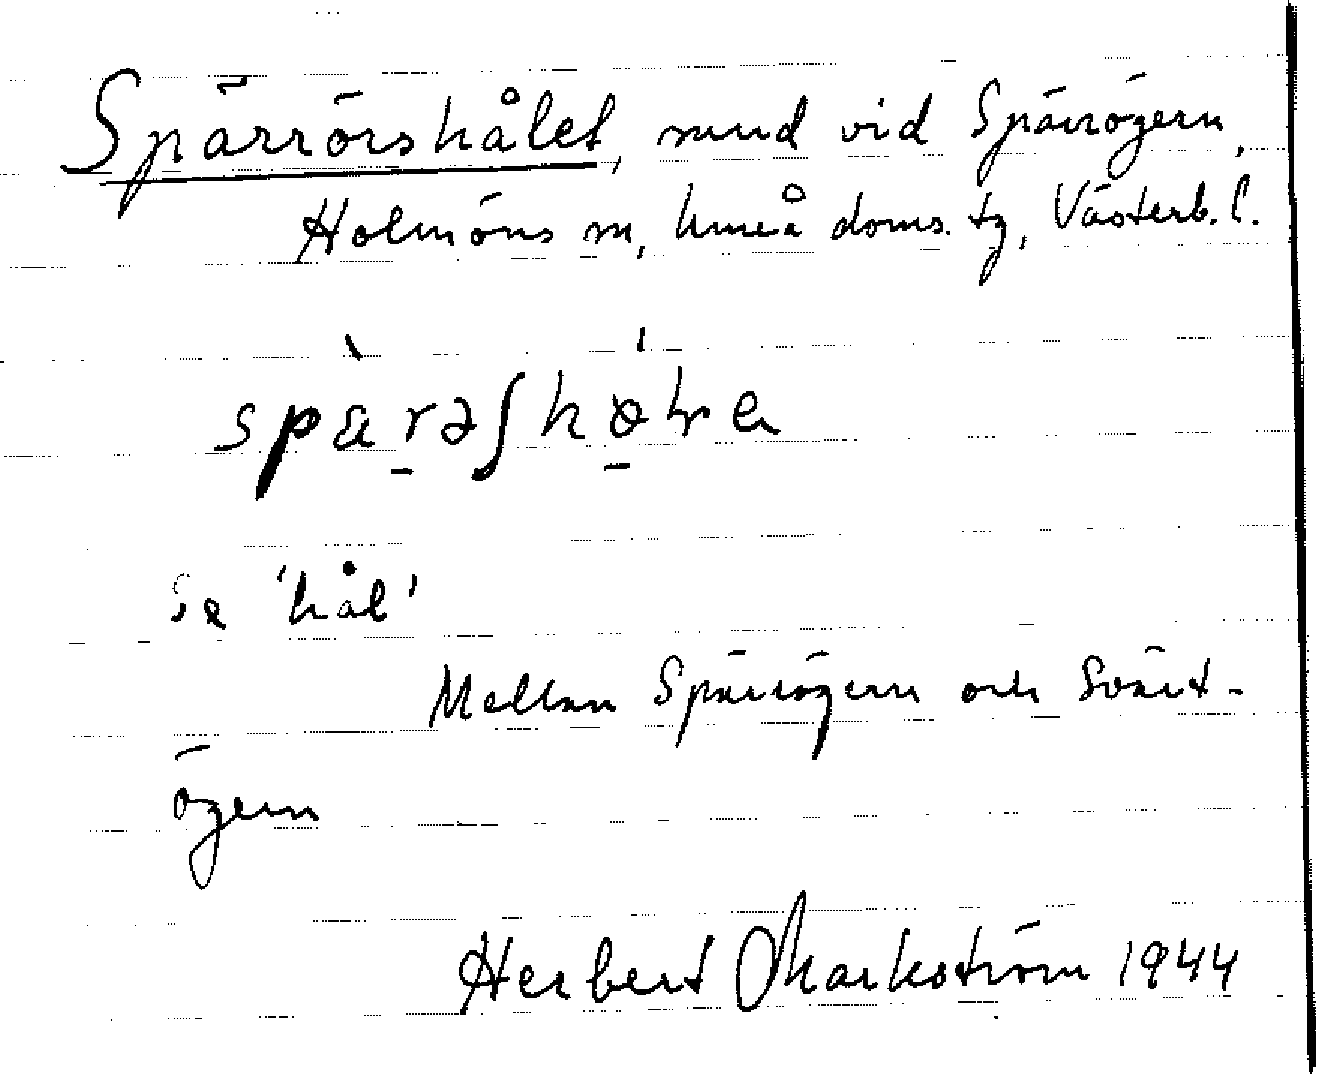 Spärrörshålet, sund vid Spärrögern,
Holmöns sn, Umeå doms. tg, Västerb. l.
se 'hål'
Mellan Spärrögern och Svärt-
ögern
Herbert Markström 1944